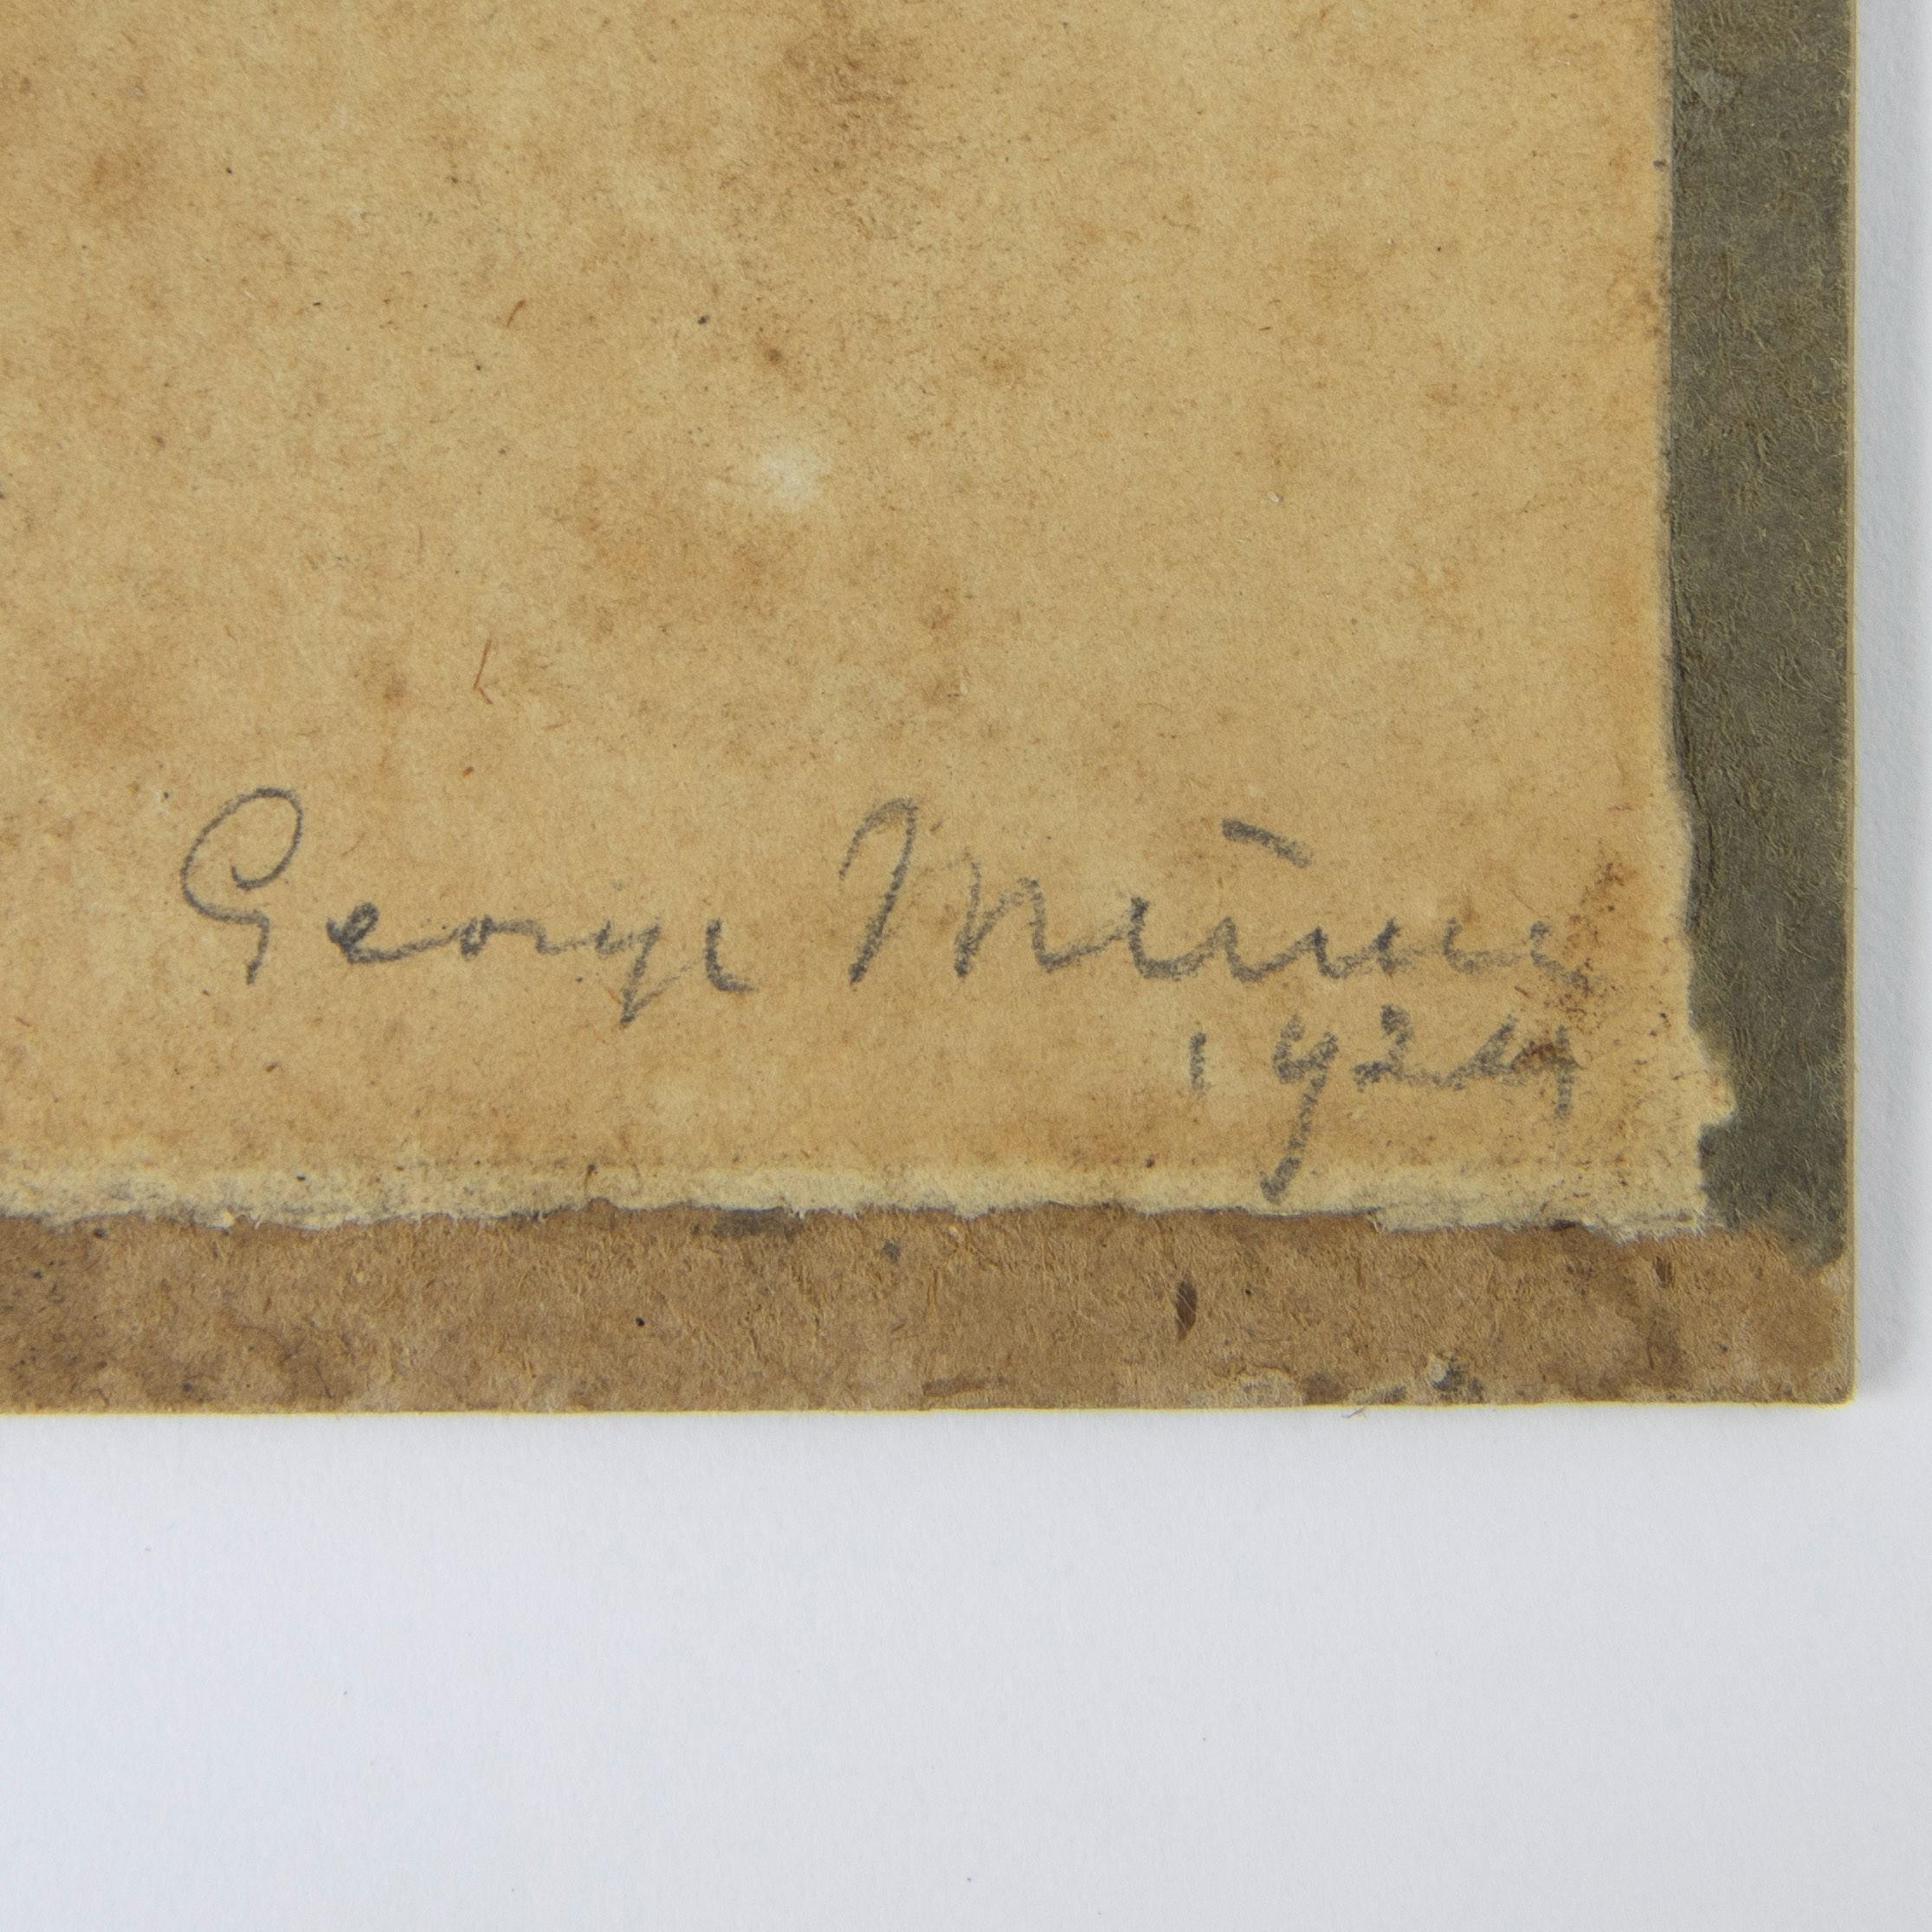 George Minne
1924